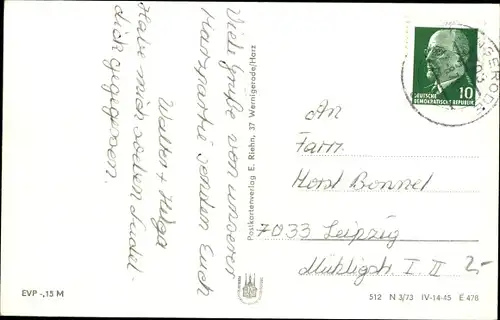 Viele Grüße von unserer
Harzpartie senden Euch
Walter + Helga
Habe mich soeben
dick gegegessen.
Postkartenverlag E. Riehn, 37 Wernigerode/Harz
DEUTSCHE
DEMOKRATISCHE REPUBLIK
10
An
Fam.
Horst Bonnet
7033 Leipzig
EVP -,15 M
512 N 3/73 IV-14-45 E 478